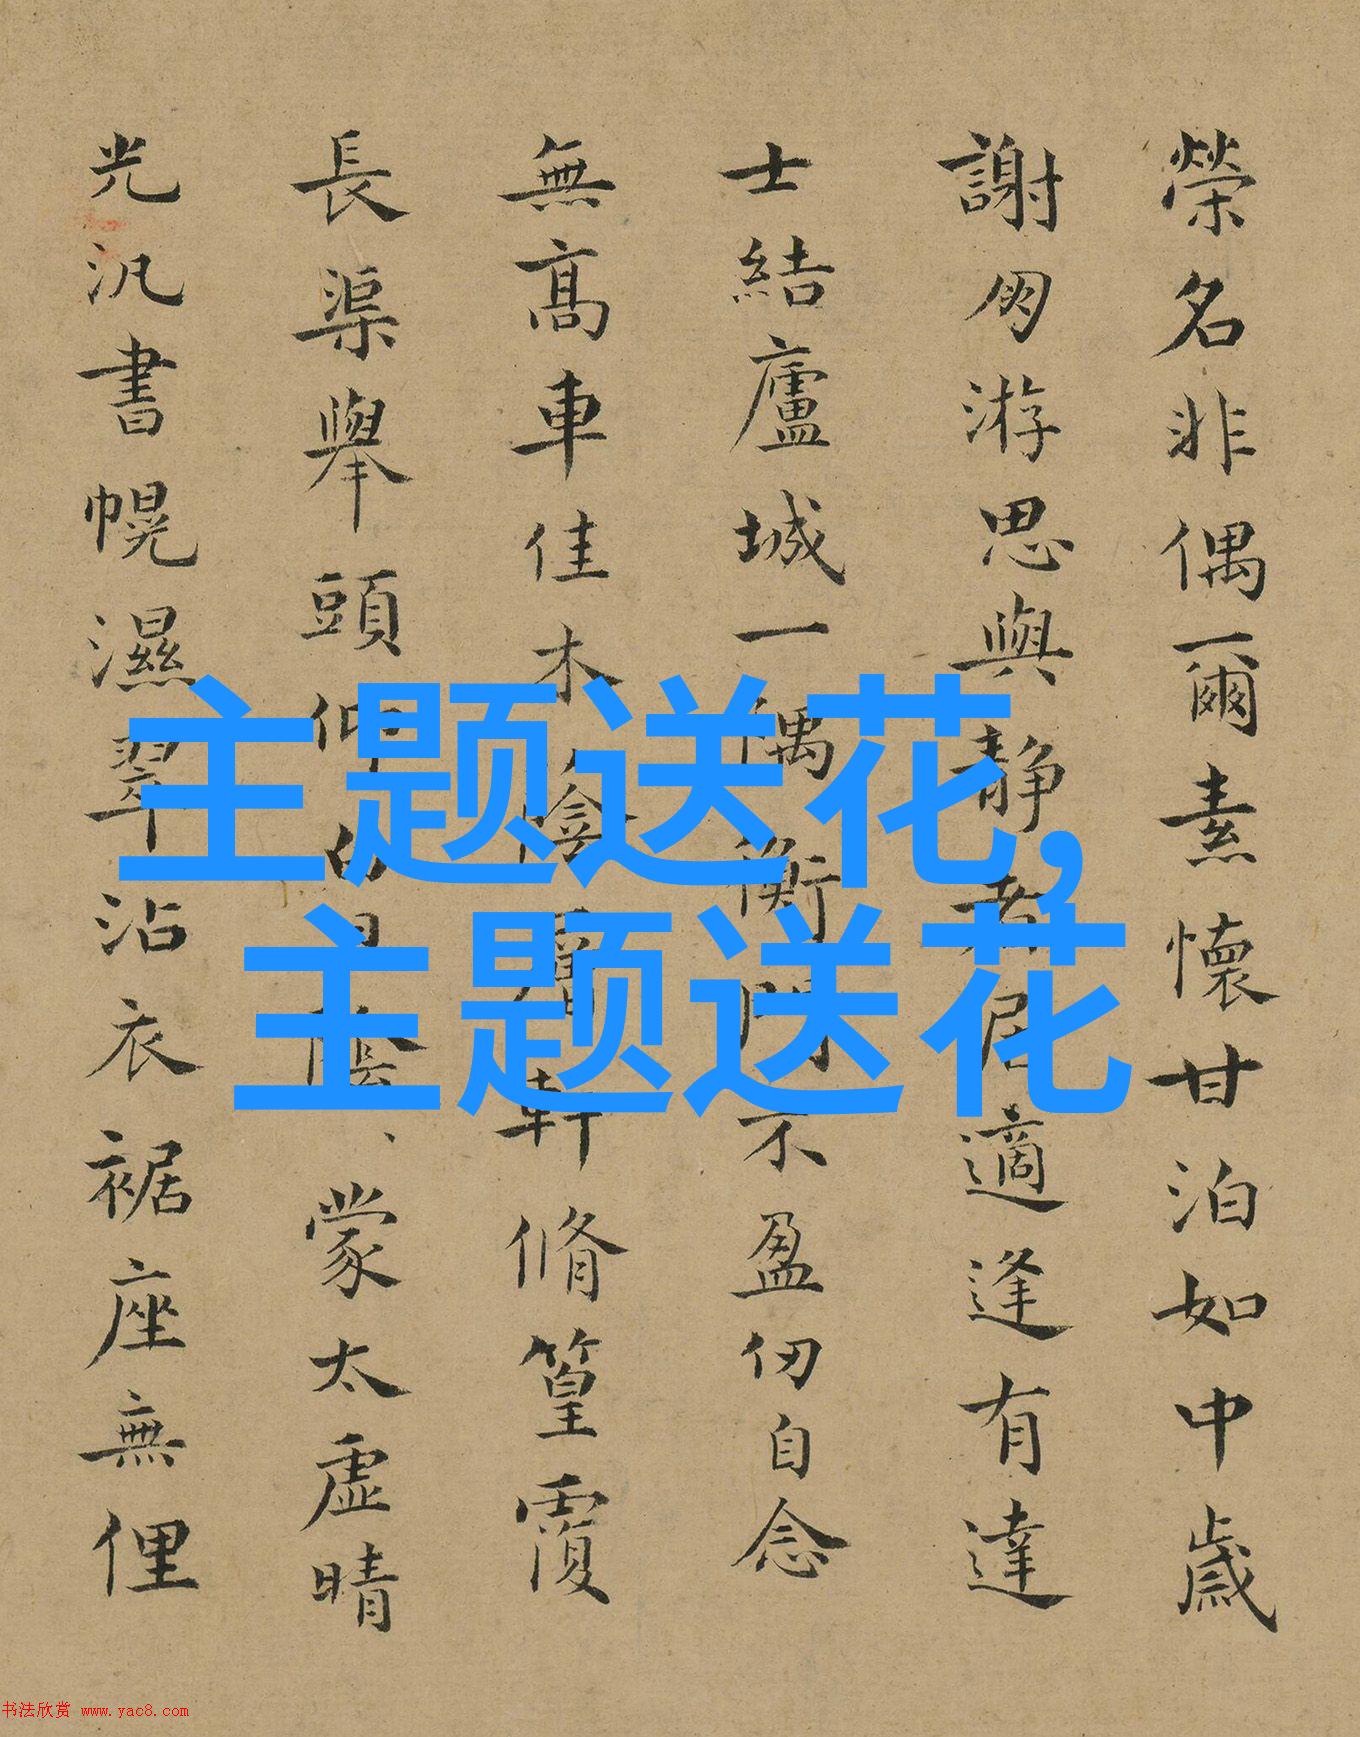 榮名非偶爾素懷甘泊如中歲
謝朋游思與靜者居適逢有達
士結廬城一隅衡門不盈仞自念
無高車佳木陰層軒脩篁覆
長渠舉頭仰蒙太虛晴
光汎書幌濕翠沾衣裾座無俚
主题送花,
主题送花
书法欣赏 www.yac8.com